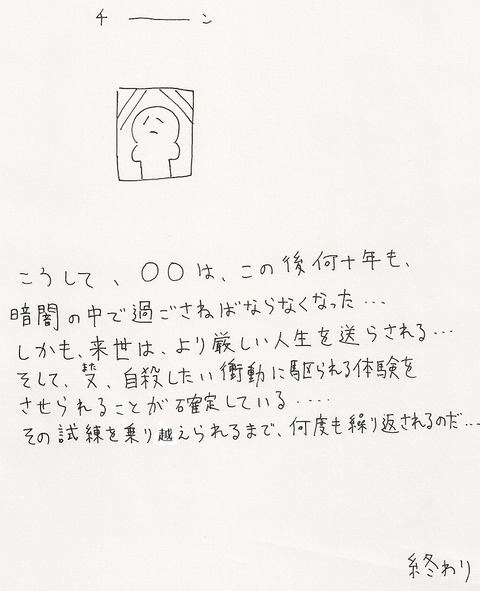 チ――ン
こうして、〇〇は、この後何十年も、
暗闇の中で過ごさねばならなくなった…
しかも、来世は、より厳しい人生を送らされる…
そして、又、自殺したい衝動に駆られる体験を
させられることが確定している‥‥
その試練を乗り越えられるまで、何度も繰り返されるのだ…
終わり